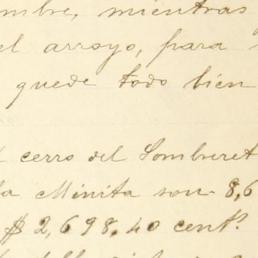 mbre, mientras
el arroyo, para
quede todo bien
cerro del Sombreret
la Minita son 8,6
$ 2,698.40 cent.s